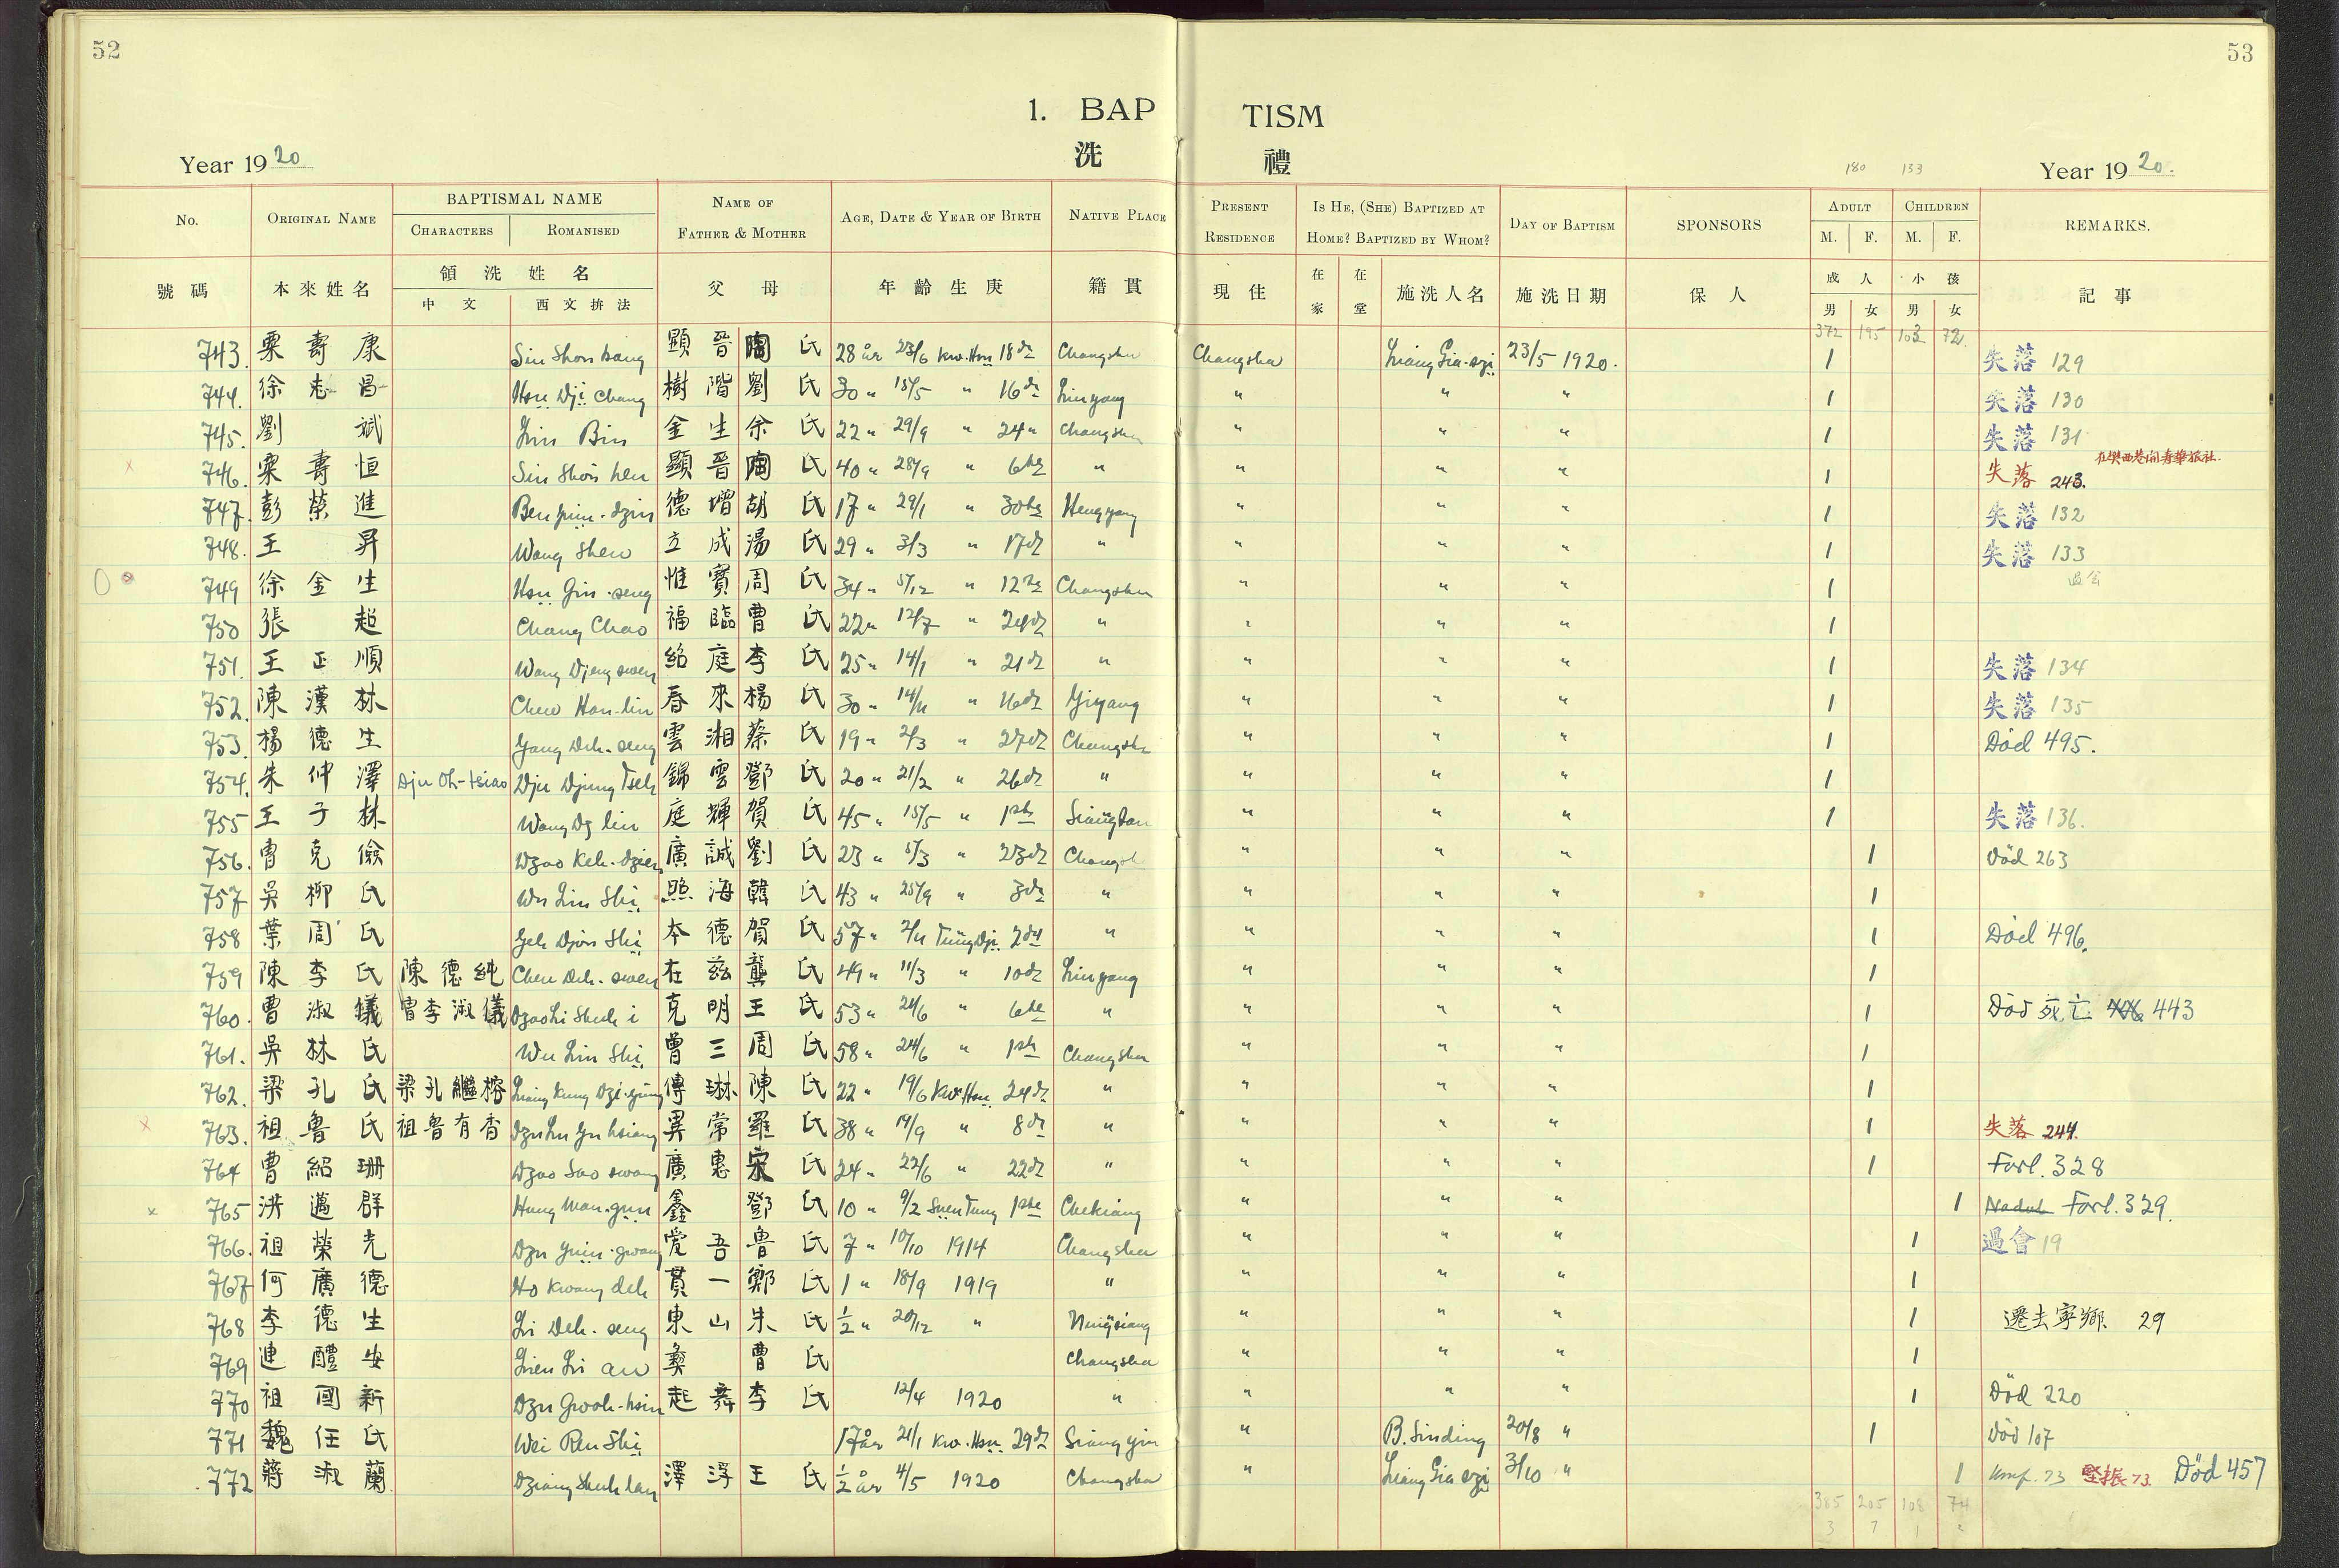 52
53
1. BAP TISM
洗 禮
Year 1920
180 133
Year 1920.
No. ORIGINAL NAME BAPTISMAL NAME CHARACTERS ROMANISED NAME OF FATHER & MOTHER AGE, DATE & YEAR OF BIRTH NATIVE PLACE PRESENT RESIDENCE IS HE, (SHE) BAPTIZED AT HOME? BAPTIZED BY WHOM? DAY OF BAPTISM SPONSORS ADULT M. F. CHILDREN M. F. REMARKS.
號碼 本來姓名 領洗姓名 中文 西文拚法 父母 年齡生庚 籍貫 現住 在家 在堂 施洗人名 施洗日期 保人 成人 男 女 小孩 男 女 記事
372 195 103 72
743. 栗壽康 Sin Shou kang 顯晋 陶氏 28 år 23/6 Kw. Hsu 18de Changsha Changsha Liang Gia-dzi 23/5 1920. 1 失落 129
744. 徐志昌 Hsu Dji Chang 樹階 劉氏 30 " 15/5 " 16de Liuyang " " " 1 失落 130
745. 劉斌 Liu Bin 金生 余氏 22 " 29/9 " 24 " Changsha " " " 1 失落 131
746. 栗壽恒 Sin Shou hen 顯晋 陶氏 40 " 28/9 " 6te " " " " 1 失落 243.
747. 彭榮進 德增 胡氏 17 " 29/1 " 30te Hengyang " " " 1 失落 132
748. 王昇 Wang Shen 立成 湯氏 29 " 3/3 " 17de " " " " 1 失落 133
749 徐金生 Hsu Gin-seng 惟寶 周氏 34 " 5/12 " 12te Changsha " " " 1
750 張超 Chang Chao 福臨 曹氏 22 " 12/7 " 24de " " " " 1
751. 王正順 Wang Djeng swen 紹庭 李氏 25 " 14/1 " 21de " " " " 1 失落 134
752. 陳漢林 Chen Han-lin 春來 楊氏 30 " 14/11 " 16de Yiyang " " " 1 失落 135
753. 楊德生 Yang Deh-seng 雲湘 蔡氏 19 " 2/3 " 27de Changsha " " " 1 Död 495.
754. 朱仲澤 Dju Oh-tsiao Dju Djung Tseh 錦雲 鄧氏 20 " 21/2 " 26de " " " " 1
755 王子林 Wang Dz lin 庭輝 賀氏 45 " 15/5 " 1ste Siangtan " " " 1 失落 136.
756. 曹克儉 Dzao Keh-dzien 廣誠 劉氏 23 " 5/3 " 23de Changsh " " " 1 död 263
757 吳柳氏 Wu Liu Shi 照海 韓氏 43 " 25/9 " 3de " " " " 1
758 葉周氏 Yeh Djou Shi 本德 賀氏 57 " 2/11 Tung Dji 2de " " " " 1 Död 496.
759 陳李氏 陳德純 Chen Deh-swen 在茲 龔氏 49 " 11/3 " 10de Liuyang " " " 1
760. 曹淑儀 曹李淑儀 Dzao Li Shuh i 克明 王氏 53 " 24/6 " 6te " " " " 1 Död 死亡 443
761. 吳林氏 Wu Lin Shi 曾三 周氏 58 " 24/6 " 1ste Changsha " " " 1
762. 梁孔氏 梁孔繼榕 傳琳 陳氏 22 " 19/6 Kw. Hsu 24de " " " " 1
763. 祖魯氏 祖魯有香 Dzu Lu Yu hsiang 異常 羅氏 38 " 19/9 " 8de " " " " 1 失落 244.
764 曹紹珊 Dzao Sao swang 廣惠 宋氏 24 " 22/6 " 22de " " " " 1 Forl. 328
765 洪邁群 鑫 鄧氏 10 " 9/2 Suen Tung 1ste Chekiang " " " 1 Forl. 329.
766. 祖榮光 愛吾 魯氏 7 " 10/10 1914 Changsha " " " 1 過會 19
767 何廣德 Ho Kwang deh 貫一 鄭氏 1 " 18/9 1919 " " " " 1
768 李德生 Li Deh-seng 東山 朱氏 1/2 " 20/12 " Ningsiang " " " 1 遷去寧鄉 29
769 連醴安 Lien Li an 彝 曹氏 Changsha " " " 1
770 祖國新 Dzu Gwoh-hsin 起舞 李氏 12/4 1920 " " " " 1 Död 220
771 魏任氏 Wei Ren Shi 17 år 21/1 Kw. Hsu 29de Siangyin " B. Sinding 20/8 " 1 Död 107
772 蔣淑蘭 Dziang Shuh lan 澤浮 王氏 1/2 år 4/5 1920 Changsha " Liang Gia dzi 3/10 " 1 Konf. 73 堅振 73. Död 457
385 205 108 74
3 7 1 2